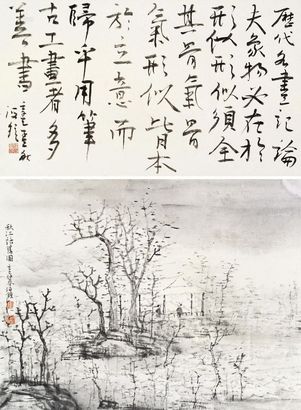 歷代名畫記論
夫象物必在於
形似形似須全
其骨氣骨
氣形似皆本
於立意而
歸乎用筆
古工畫者多
善書
秋江